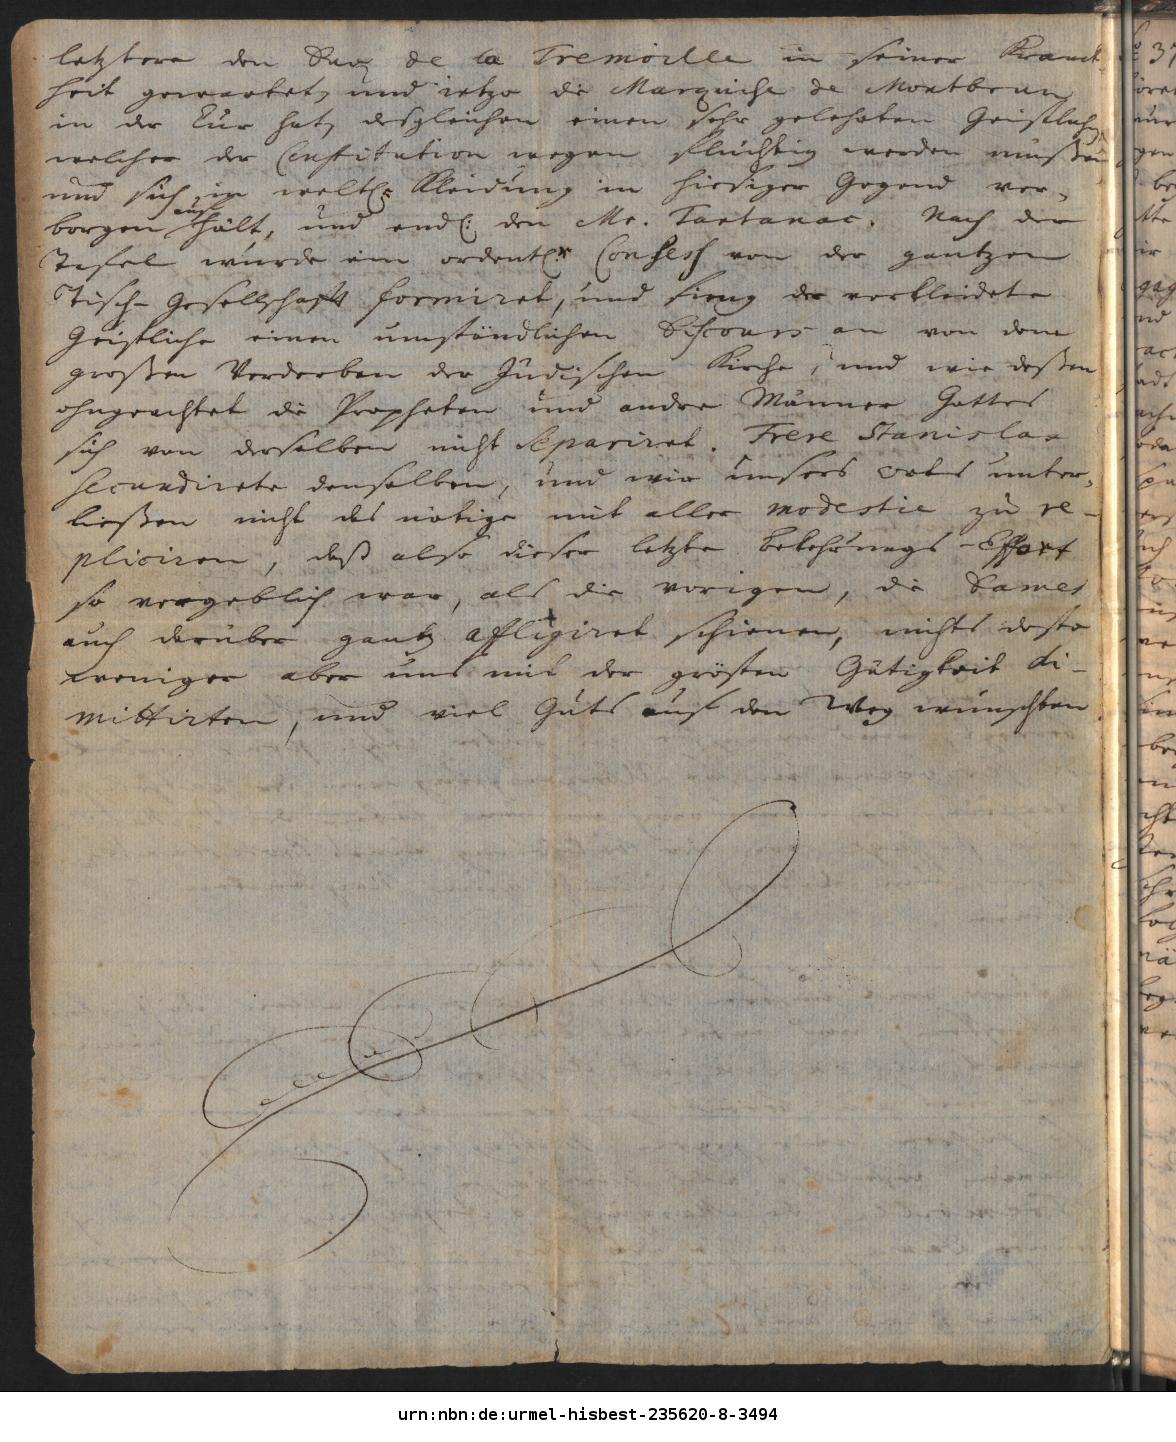 letztere den Duc de la Tremoille in seiner Kranck
heit gewartet, und ietzo die Marquise de Montbrun
in der Cur hat, desgleichen einen sehr gelehrten Geistlichen
welcher der Constitution wegen flüchtig werden müßen
und sich in weltl. Kleidung in hiesiger Gegend ver-
borgen aufhält, und endl. den Mr. Tartanac. Nach der
Tafel wurde ein ordentl. Confess von der gantzen
Tisch-Gesellschafft formiret, und fieng der verkleidete
Geistliche einen umständlichen Discours an von dem
großen Verderben der Jüdischen Kirche, und wie deßen
ohngeachtet die Propheten und andre Männer Gottes
sich von derselben nicht separiret. Frere Stanislas
secundirete denselben, und wir unsers orts unter-
ließen nicht das nötige mit aller modestie zu re-
pliciren, daß also dieser letzte bekehrungs-Effort
so vergeblich war, als die vorigen, die Dames
auch darüber gantz affligiret schienen, nichts desto
weniger aber uns mit der grösten Gütigkeit di-
mittirten, und viel Guts auf den Weg wünschten
urn:nbn:de:urmel-hisbest-235620-8-3494